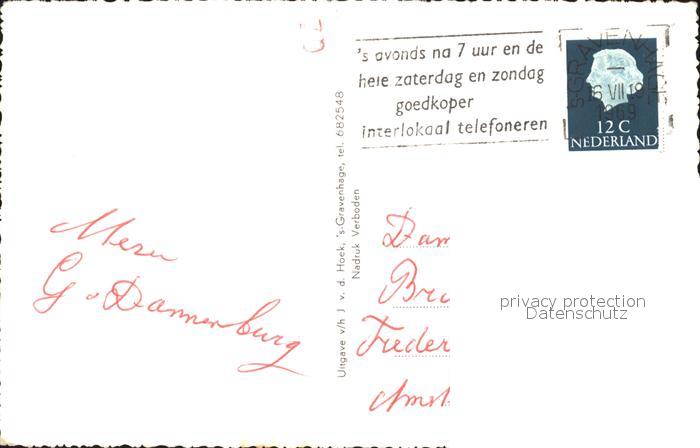 's avonds na 7 uur en de
hele zaterdag en zondag
goedkoper
interlokaal telefoneren
's-GRAVENHAGE
16 VII 18
1969
12 C
NEDERLAND
Uitgave v/h J v. d. Hoek, 's-Gravenhage, tel. 682548
Nadruk Verboden
G v Dannenburg
Dan
Br
Freder
Amst
privacy protection
Datenschutz